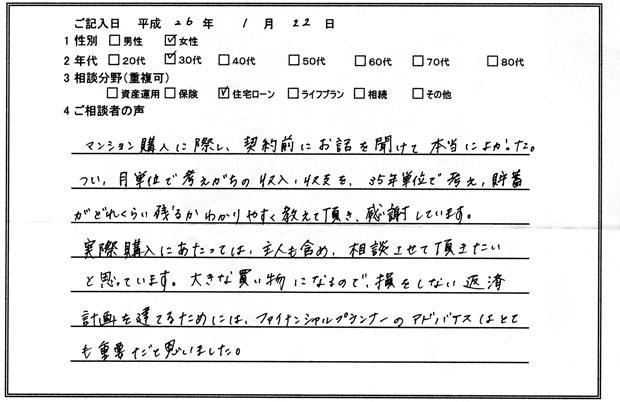 ご記入日 平成 26 年 1 月 22 日
1 性別 □男性 ☑女性
2 年代 □20代 ☑30代 □40代 □50代 □60代 □70代 □80代
3 相談分野(重複可)
□資産運用 □保険 ☑住宅ローン □ライフプラン □相続 □その他
4 ご相談者の声
マンション購入に際し、契約前にお話を聞けて本当によかった。
つい、月単位で考えがちの収入、収支を、35年単位で考え、貯蓄
がどれくらい残るかわかりやすく教えて頂き、感謝しています。
実際購入にあたっては、主人も含め、相談させて頂きたい
と思っています。大きな買い物になるので、損をしない返済
計画を建てるためには、ファイナンシャルプランナーのアドバイスはとて
も重要だと思いました。